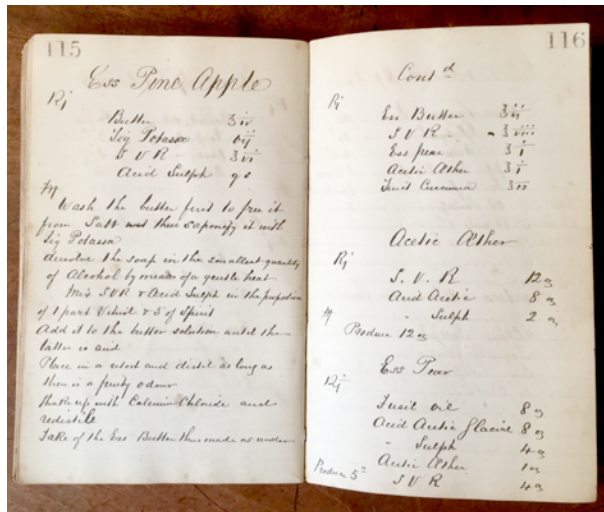 115
Ess Pine Apple
Rj
Butter ℥iv
Liq Potassae
S V R ℥vi
Acid Sulph q s
Wash the butter first to free it
from Salt and then saponify it with
Liq Potassa
dissolve the soap in the smallest quantity
of Alcohol by means of a gentle heat
Mix S V R & Acid Sulph in the proportion
of 1 part Vitriol & 5 of Spirit
Add it to the butter solution until the
latter is acid
Place in a retort and distil as long as
there is a fruity odour
Shake up with Calcium Chloride and
redistil
Take of the Ess Butter thus made as under
116
Contd
R
Ess Butter ℥ii
S V R ℥viii
Ess pear ℥i
Acetic Æther ℥i
Curcuma
Acetic Æther
Rj
S. V. R 12 oz
Acid Acetic 8 oz
" Sulph 2 oz
Produce 12 oz
Ess Pear
R
Fusil oil 8 oz
Acid Acetic Glacial 8 oz
" Sulph 4 oz
Acetic Æther 1 oz
Produce 5
S V R 4 oz